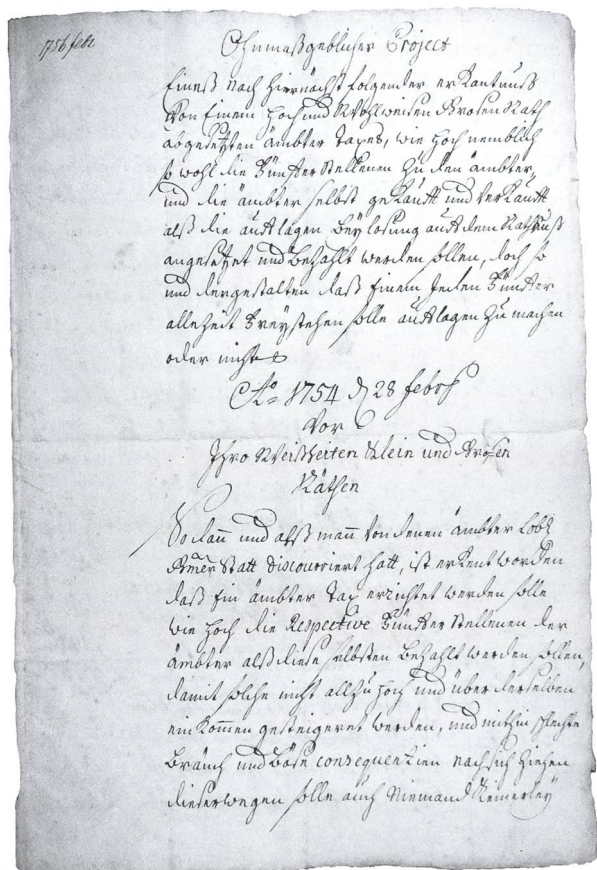 1756 febr
Ohnmaßgeblicher Project
Eineß nach hiernächst folgender erkantnuß
Von Einem hoch und Wohlweisen Grosen Rath
abgesetzten ämbter Taxes, wie hoch nemblich
so wohl die Zünfter Stellenen zu den ämbter,
und die ämbter selbst gekaufft und verkaufft
alß die aufflagen beylosung auß dem Rathhuß
angesetzet und bezahlt werden sollen, doch so
und dergestalten daß Einem jeden Zünfter
allezeit Freystehen solle aufflagen zu machen
oder nicht
Aō 1754 d 28 febr
Vor
Ihro Weißheiten Klein und Grosen
Räthen
So dan̄ und alß man̄ von denen ämbter Lobl
Statt discourriert hatt, ist erkent worden
daß Ein ämbter Tax erzichtet werden solle
wie hoch die Respective Zünfter Stellenen der
ämbter alß diese selbsten bezahlt werden sollen,
damit solche nicht allzu hoch und über derselben
einkom̄en gesteigeret werden, und mithin schlechte
bräuch und böse consequentien nach sich ziehen
dieserwegen solle auch Niemand Keinerley